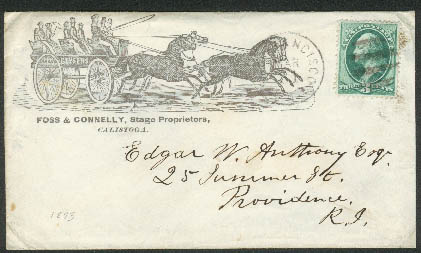 FOSS & CONNELLY, Stage Proprietors,
CALISTOGA.
Edgar W. Anthony Esq.
25 Summer St.
Providence.
R.I.
1893